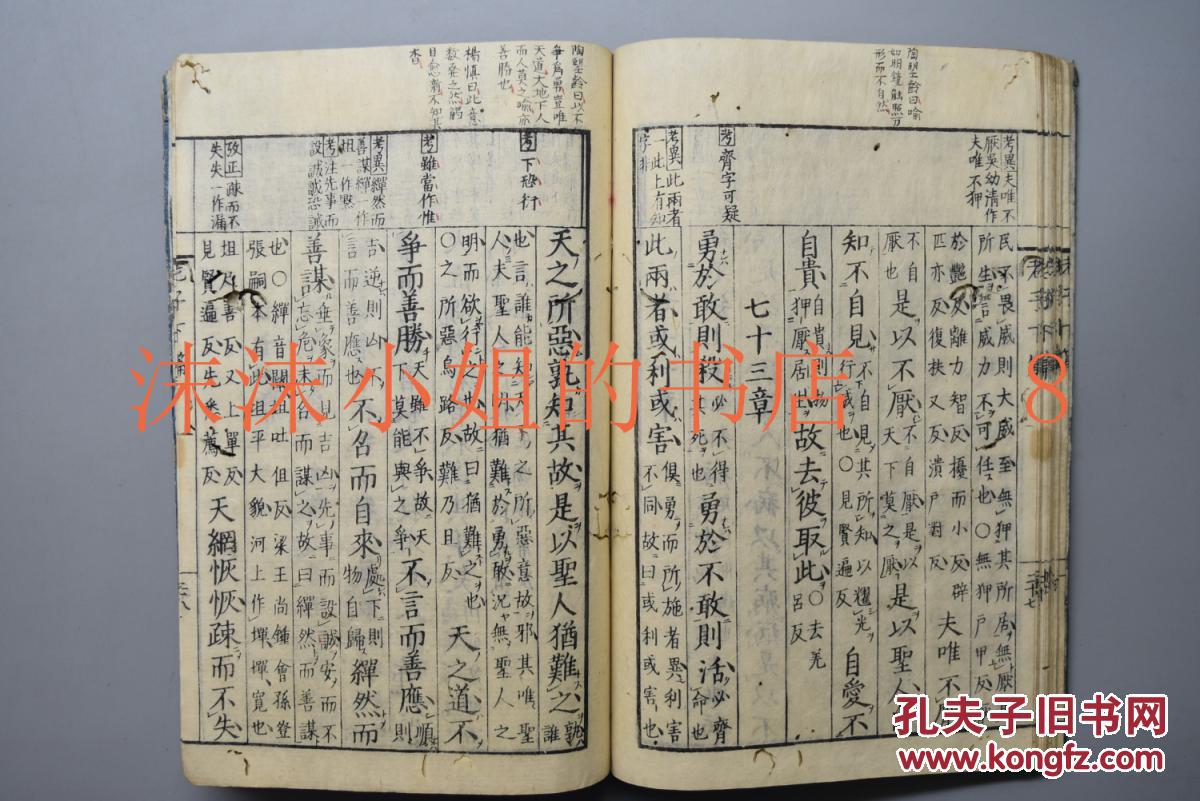 陶望齡曰喻
如明鏡能照万
形而不自然
考異夫唯不
厭吳幼清作
夫唯不狎
考齊字可疑
考異此兩者
一此上有知
字非
民不畏威則大威至無狎其所居無厭其
所生言威力不可任也〇無狎戶甲反
於豔反離力智反擾而小反辟
匹亦反復扶又反潰戶對反夫唯不厭
不自厭也是以不厭不自厭是以天下莫之厭是以聖人
知不自見不自見其所知以耀光行威也〇見賢遍反自愛不
自貴自貴則物狎厭居生故去彼取此〇去羌呂反
七十三章
勇於敢則殺必不得其死也勇於不敢則活必齊命也
此兩者或利或害俱勇而所施者異利害不同故曰或利或害也
陶望齡曰以不
爭為勇豈唯
天道大地下人
而人莫之喻亦
善勝也
楊慎曰此意
數桑之然
日愈翕不知其
考下恐衍
考雖當作惟
考異繟然而
善謀繟一作
坦一作默
考注先事而
設誠誠恐誡
攷正疎而不
失失一作漏
天之所惡孰知其故是以聖人猶難之孰誰
也言誰能知天下之所惡意故邪其唯聖
人夫聖人之明猶難於勇敢況無聖人之
明而欲行之也故曰猶難之也
〇之所惡烏路反難乃旦反天之道不
爭而善勝天雖不爭故天下莫能與之爭不言而善應順則
吉逆則凶不言而善應也不召而自來處下則物自歸繟然而
善謀垂象而見吉凶先事而設誠安而不忘危未召而謀之故曰繟然而善謀
也〇繟音闡坦吐但反梁王尚鍾會孫登
張嗣本有此坦平大貌河上作墠墠寬也
坦及善反又上單反
見賢遍反先悉薦反天網恢恢疎而不失
老子下
沫沫小姐的书店
8
孔夫子旧书网
www.kongfz.com